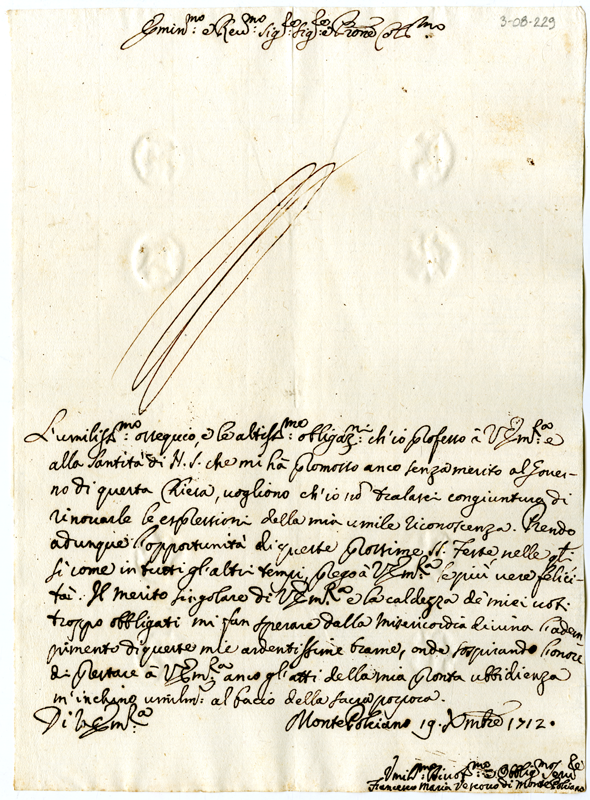 3-08-229
Emin.mo e Rev.mo Sig.re Sig.re e Prone Col.mo
L'umiliss.mo ossequio, e le altiss.me obligaz.ni ch'io professo à V. Em.za e
alla Santità di N. S. che mi hà promosso anco senza merito al Gover-
no di questa Chiesa, vogliono ch'io nõ tralasci congiuntura di
rinovarle le espressioni della mia umile riconoscenza. Prendo
adunque l'opportunità di queste prossime SS. Feste, nelle q.li
si come in tutti gl'altri tempi, prego à V. Em.za le più vere felici-
tà. Il merito singolare di V. Em.za e la caldezza de' miei voti
troppo obbligati mi fan sperare dalla Misericordia divina l'adem-
pimento di queste mie ardentissime brame, onde sospirando l'onore
di prestare à V. Em.za anco gl'atti della mia pronta ubbidienza
m'inchino umilm.e al bacio della sacra porpora.
Di V. Em.za MontePolciano 19. Xmbre 1712.
Umil.mo Divot.mo e Obblig.mo Serv.re
Francesco Maria Vescovo di MontePolciano